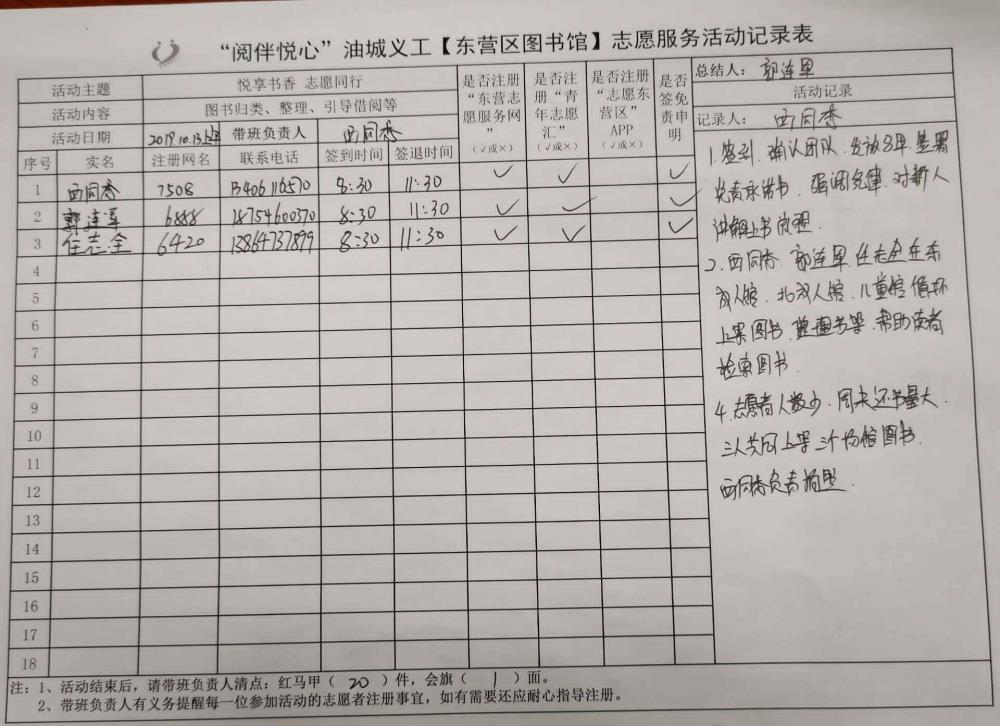 “阅伴悦心”油城义工【东营区图书馆】志愿服务活动记录表
活动主题 悦享书香 志愿同行
活动内容 图书归类、整理、引导借阅等
活动日期 2019.10.13上午 带班负责人 西同香
是否注册“东营志愿服务网”（√或×）
是否注册“青年志愿汇”（√或×）
是否注册“志愿东营区”APP（√或×）
是否签免责申明
总结人：郭连军
活动记录
记录人：西同香
序号 实名 注册网名 联系电话 签到时间 签退时间
1 西同香 7508 13406116570 8:30 11:30 ✓ ✓ ✓
2 郭连军 6888 18754600370 8:30 11:30 ✓ ✓ ✓
3 任志全 6420 13864737899 8:30 11:30 ✓ ✓ ✓
4
5
6
7
8
9
10
11
12
13
14
15
16
17
18
1.签到、确认团队、发放马甲、签署
免责承诺书、强调纪律、对新人
讲解上书流程.
2.西同香、郭连军、任志全在东
成人馆、北成人馆、儿童馆循环
上架图书、整理书架、帮助读者
检索图书.
4.志愿者人数少、周末还书量大、
三人共同上架三个场馆图书.
西同香负责摄照.
注：1、活动结束后，请带班负责人清点：红马甲（ 20 ）件，会旗（ 1 ）面。
2、带班负责人有义务提醒每一位参加活动的志愿者注册事宜，如有需要还应耐心指导注册。